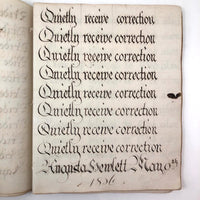 Quietly receive correction
Quietly receive correction
Quietly receive correction
Quietly receive correction
Quietly receive correction
Quietly receive correction
Quietly receive correction
Quietly receive correction
Augusta Hewlett May
1836